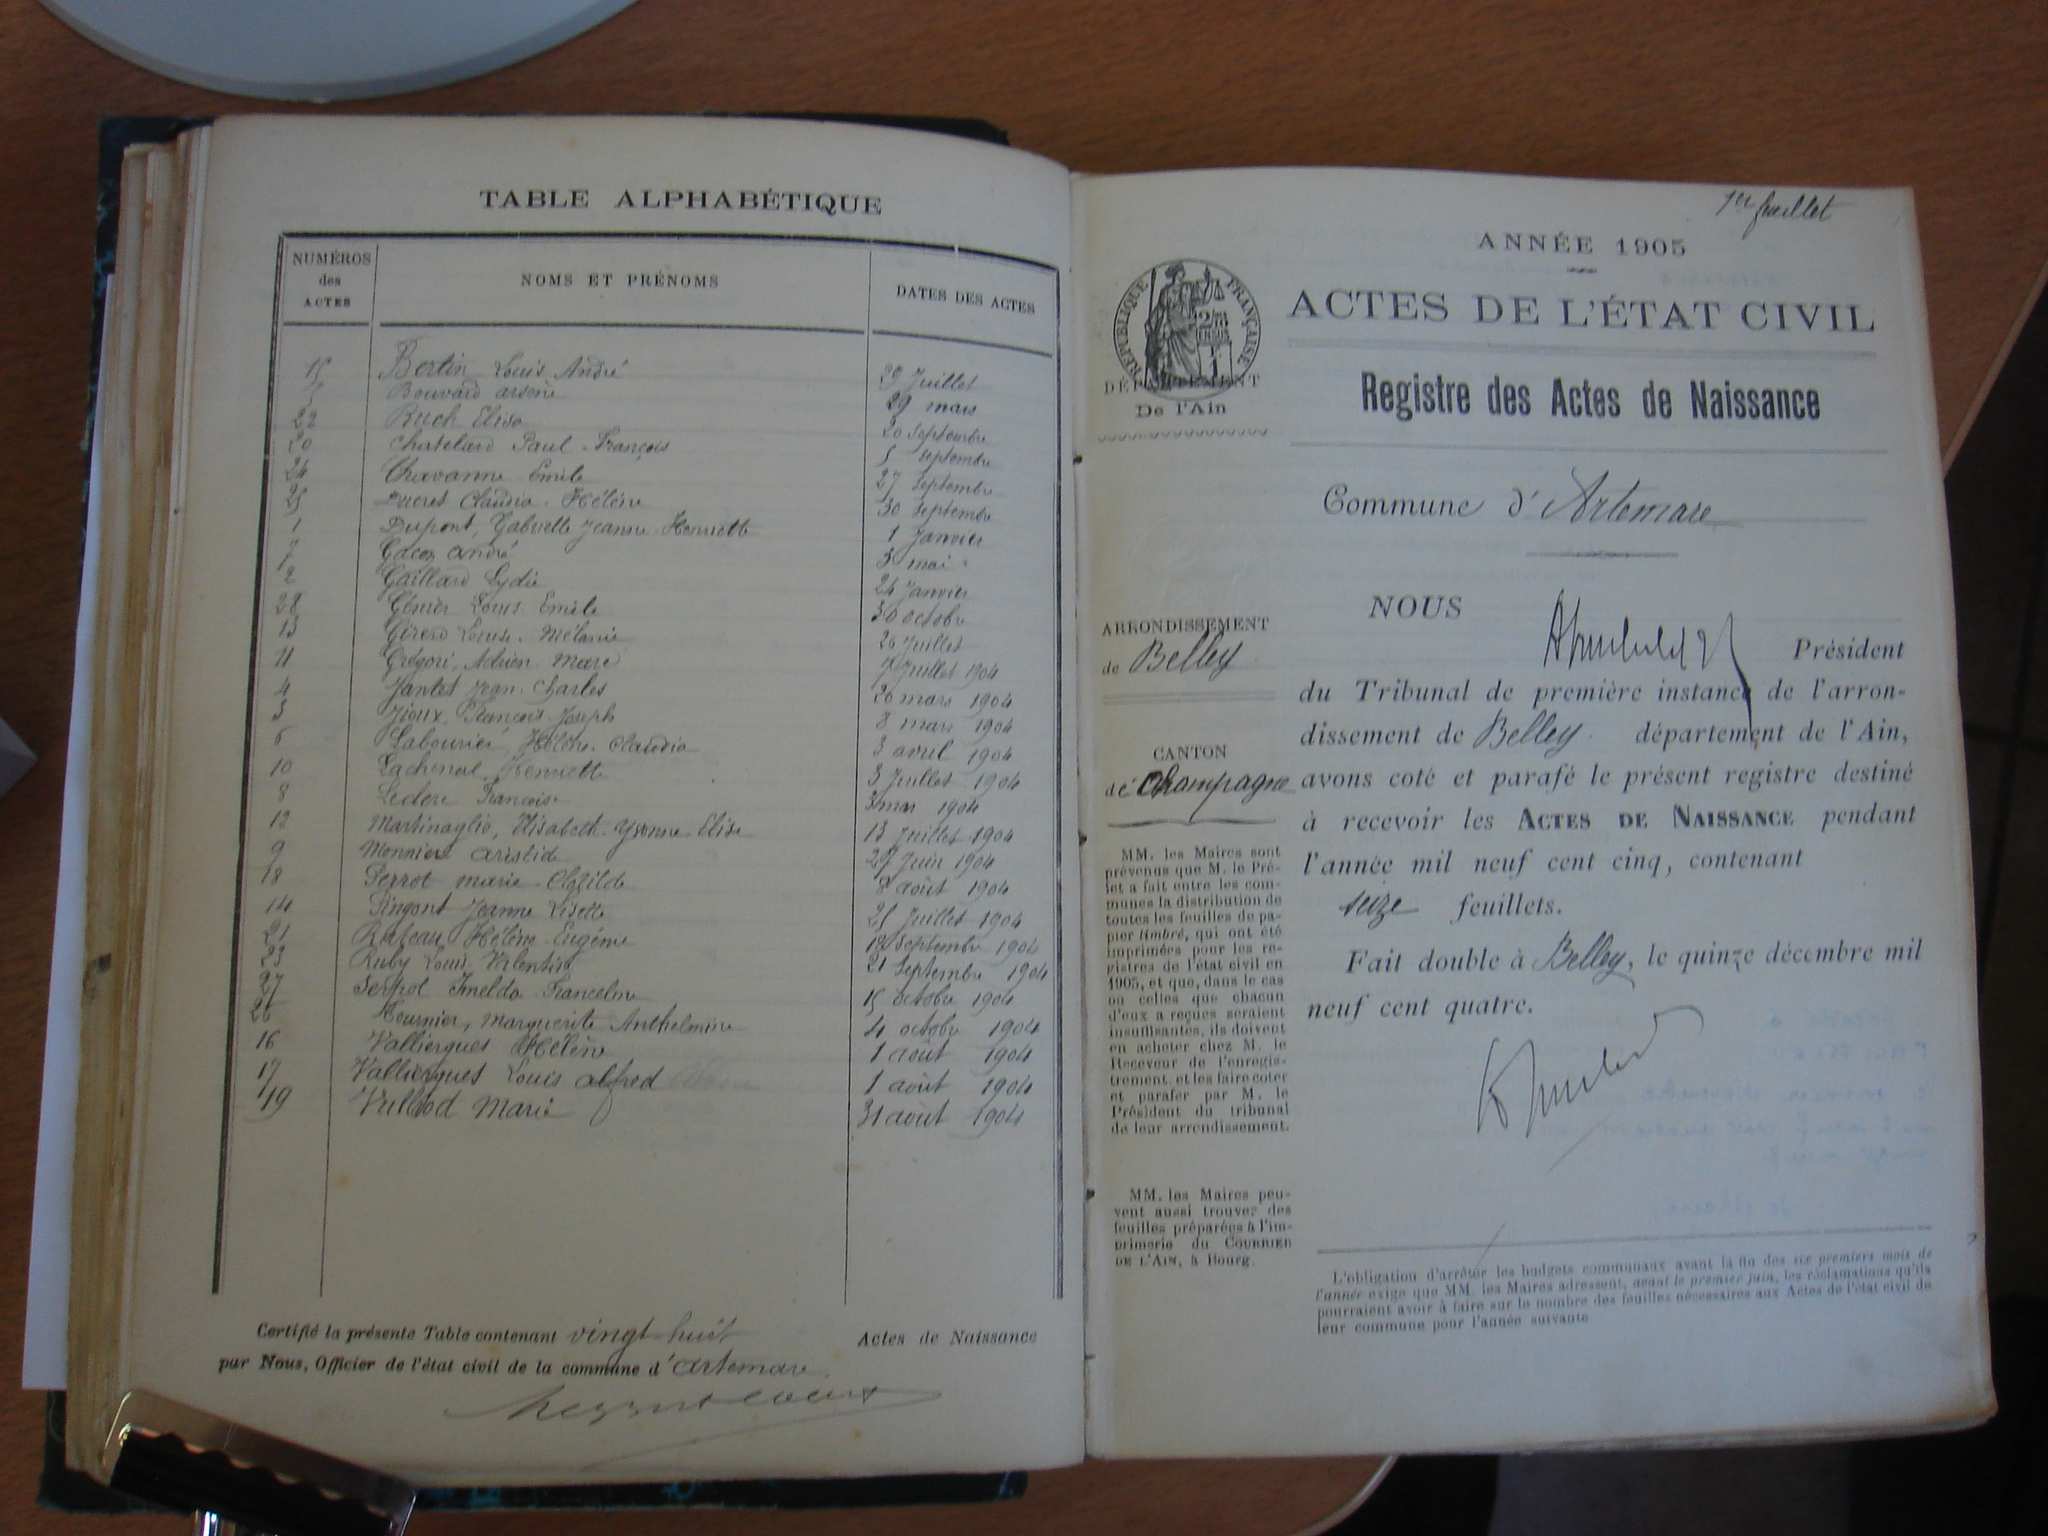 TABLE ALPHABÉTIQUE
NUMÉROS
des
ACTES
NOMS ET PRÉNOMS
DATES DES ACTES
15 Bertin Louis André 29 Juillet
5 Bouvard arsène 29 mars
22 Ruch Elisa 20 Septembre
20 Chatelard Paul-François 5 septembre
24 Chavanne Emile 27 Septembre
25 Ducret Claudia-Hélène 30 septembre
1 Dupont, Gabrielle Jeanne-Henriette 1 Janvier
7 André 3 mai
2 Gaillard Lydie 24 Janvier
28 Génier Louis Emile 30 octobre
13 Girerd Louise-Mélanie 26 Juillet
11 Grégori, Adrien Marc Juillet 1904
4 Jantet Jean-Charles 26 mars 1904
3 Jioux François-Joseph 8 mars 1904
6 Labourier, Hélène-Claudia 3 avril 1904
10 Lachenal Henriette 3 Juillet 1904
8 Leclerc Française 3 mai 1904
12 Martinaglio, Elisabeth-Yvonne-Elise 13 Juillet 1904
9 Monnier aristide 27 Juin 1904
18 Perrot marie-Clotilde 8 août 1904
14 Pingont Jeanne Lisette 25 Juillet 1904
21 Rateau, Hélène-Eugénie 18 Septembre 1904
23 Ruby Louis Valentin 21 Septembre 1904
27 Serpol Imelda Franceline 15 octobre 1904
26 Tournier, Marguerite Anthelmine 4 octobre 1904
16 Valliergues Hélène 1 août 1904
17 Valliergues Louis alfred 1 août 1904
19 Vulliod Marie 31 août 1904
Certifié la présente Table contenant vingt-huit Actes de Naissance
par Nous, Officier de l'état civil de la commune d'artemare.
1er feuillet
ANNÉE 1905
RÉPUBLIQUE FRANÇAISE
2/10
EN SUS
1
ACTES DE L'ÉTAT CIVIL
DÉPARTEMENT
De l'Ain
Registre des Actes de Naissance
Commune d'Artemare
ARRONDISSEMENT
de Belley
CANTON
de Champagne
MM. les Maires sont
prévenus que M. le Pré-
fet a fait entre les com-
munes la distribution de
toutes les feuilles de pa-
pier timbré, qui ont été
imprimées pour les re-
gistres de l'état civil en
1905, et que, dans le cas
où celles que chacun
d'eux a reçues seraient
insuffisantes, ils doivent
en acheter chez M. le
Receveur de l'enregis-
trement, et les faire coter
et parafer par M. le
Président du tribunal
de leur arrondissement.
MM. les Maires peu-
vent aussi trouver des
feuilles préparées à l'im-
primerie du COURRIER
DE L'AIN, à Bourg.
NOUS Président
du Tribunal de première instance de l'arron-
dissement de Belley département de l'Ain,
avons coté et parafé le présent registre destiné
à recevoir les ACTES DE NAISSANCE pendant
l'année mil neuf cent cinq, contenant
seize feuillets.
Fait double à Belley, le quinze décembre mil
neuf cent quatre.
L'obligation d'arrêter les budgets communaux avant la fin des six premiers mois de
l'année exige que MM. les Maires adressent, avant le premier juin, les réclamations qu'ils
pourraient avoir à faire sur le nombre des feuilles nécessaires aux Actes de l'état civil de
leur commune pour l'année suivante